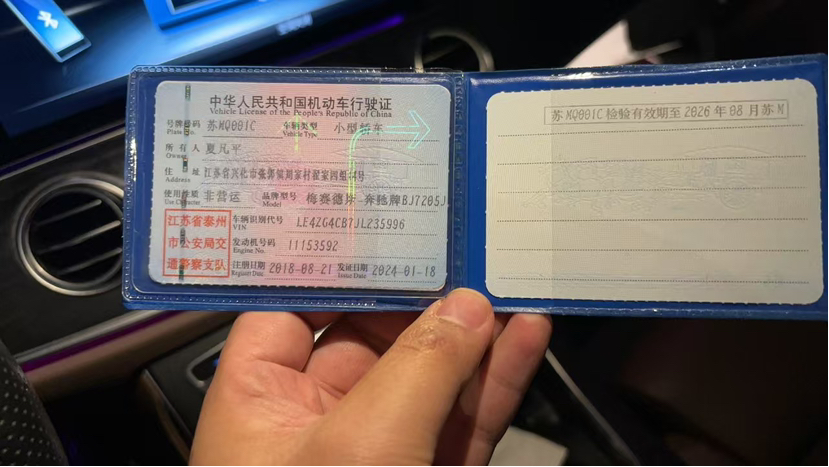 中华人民共和国机动车行驶证
Vehicle License of the People's Republic of China
号牌号码 苏MQ001C 车辆类型 小型轿车
Plate No. Vehicle Type
所有人 夏凡平
Owner
住址 江苏省兴化市张郭镇周家村翟家四组44号
Address
使用性质 非营运 品牌型号 梅赛德斯-奔驰牌BJ7205J
Use Character Model
江苏省泰州
市公安局交
通警察支队
车辆识别代号 LE4ZG4CB7JL235996
VIN
发动机号码 11153592
Engine No.
注册日期 2018-08-21 发证日期 2024-01-18
Register Date Issue Date
苏MQ001C 检验有效期至 2026年08月苏M